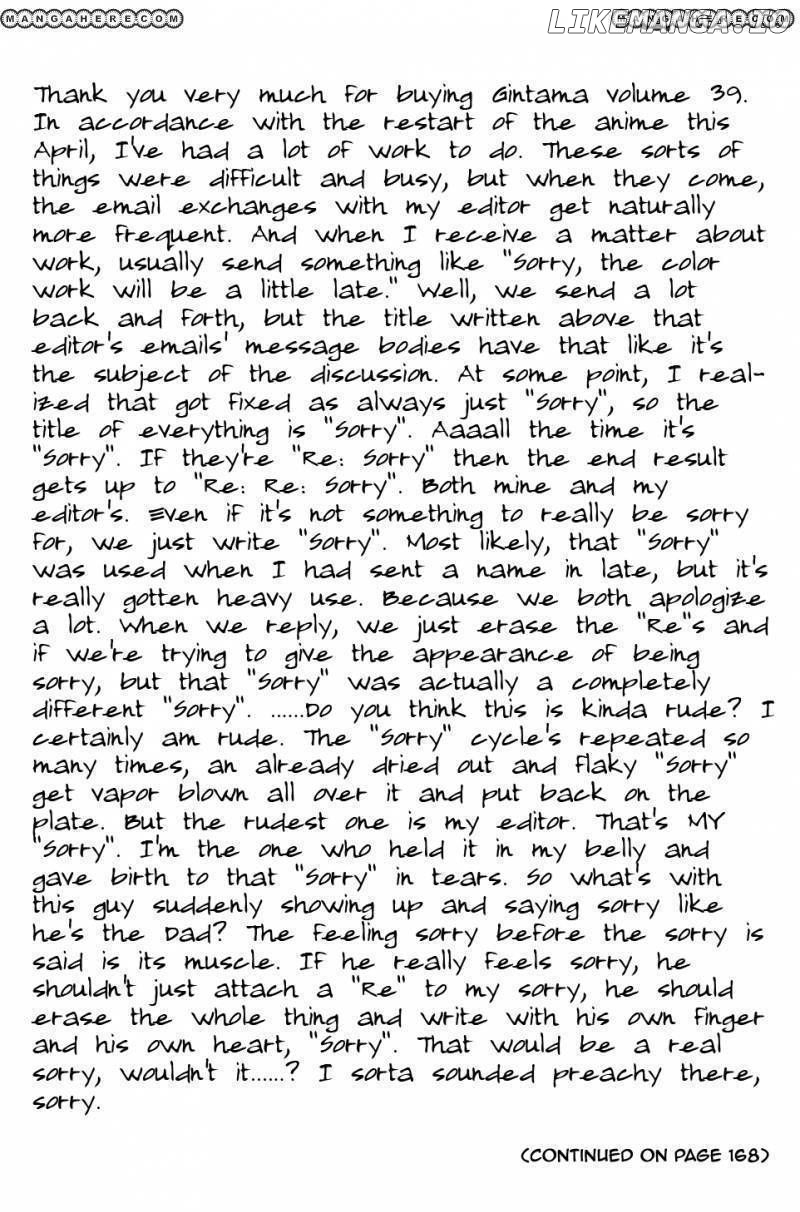 MANGAHERE.COM
LIKEMANGA.IO
Thank you very much for buying Gintama volume 39.
In accordance with the restart of the anime this
April, I've had a lot of work to do. These sorts of
things were difficult and busy, but when they come,
the email exchanges with my editor get naturally
more frequent. And when I receive a matter about
work, usually send something like "Sorry, the color
work will be a little late." Well, we send a lot
back and forth, but the title written above that
editor's emails' message bodies have that like it's
the subject of the discussion. At some point, I real-
ized that got fixed as always just "Sorry", so the
title of everything is "Sorry". Aaaall the time it's
"Sorry". If they're "Re: Sorry" then the end result
gets up to "Re: Re: Sorry". Both mine and my
editor's. Even if it's not something to really be sorry
for, we just write "Sorry". Most likely, that "Sorry"
was used when I had sent a name in late, but it's
really gotten heavy use. Because we both apologize
a lot. When we reply, we just erase the "Re"s and
if we're trying to give the appearance of being
sorry, but that "Sorry" was actually a completely
different "Sorry". ......Do you think this is kinda rude? I
certainly am rude. The "Sorry" cycle's repeated so
many times, an already dried out and flaky "Sorry"
get vapor blown all over it and put back on the
plate. But the rudest one is my editor. That's MY
"Sorry". I'm the one who held it in my belly and
gave birth to that "Sorry" in tears. So what's with
this guy suddenly showing up and saying sorry like
he's the Dad? The feeling sorry before the sorry is
said is its muscle. If he really feels sorry, he
shouldn't just attach a "Re" to my sorry, he should
erase the whole thing and write with his own finger
and his own heart, "Sorry". That would be a real
sorry, wouldn't it......? I sorta sounded preachy there,
sorry.
(CONTINUED ON PAGE 168)